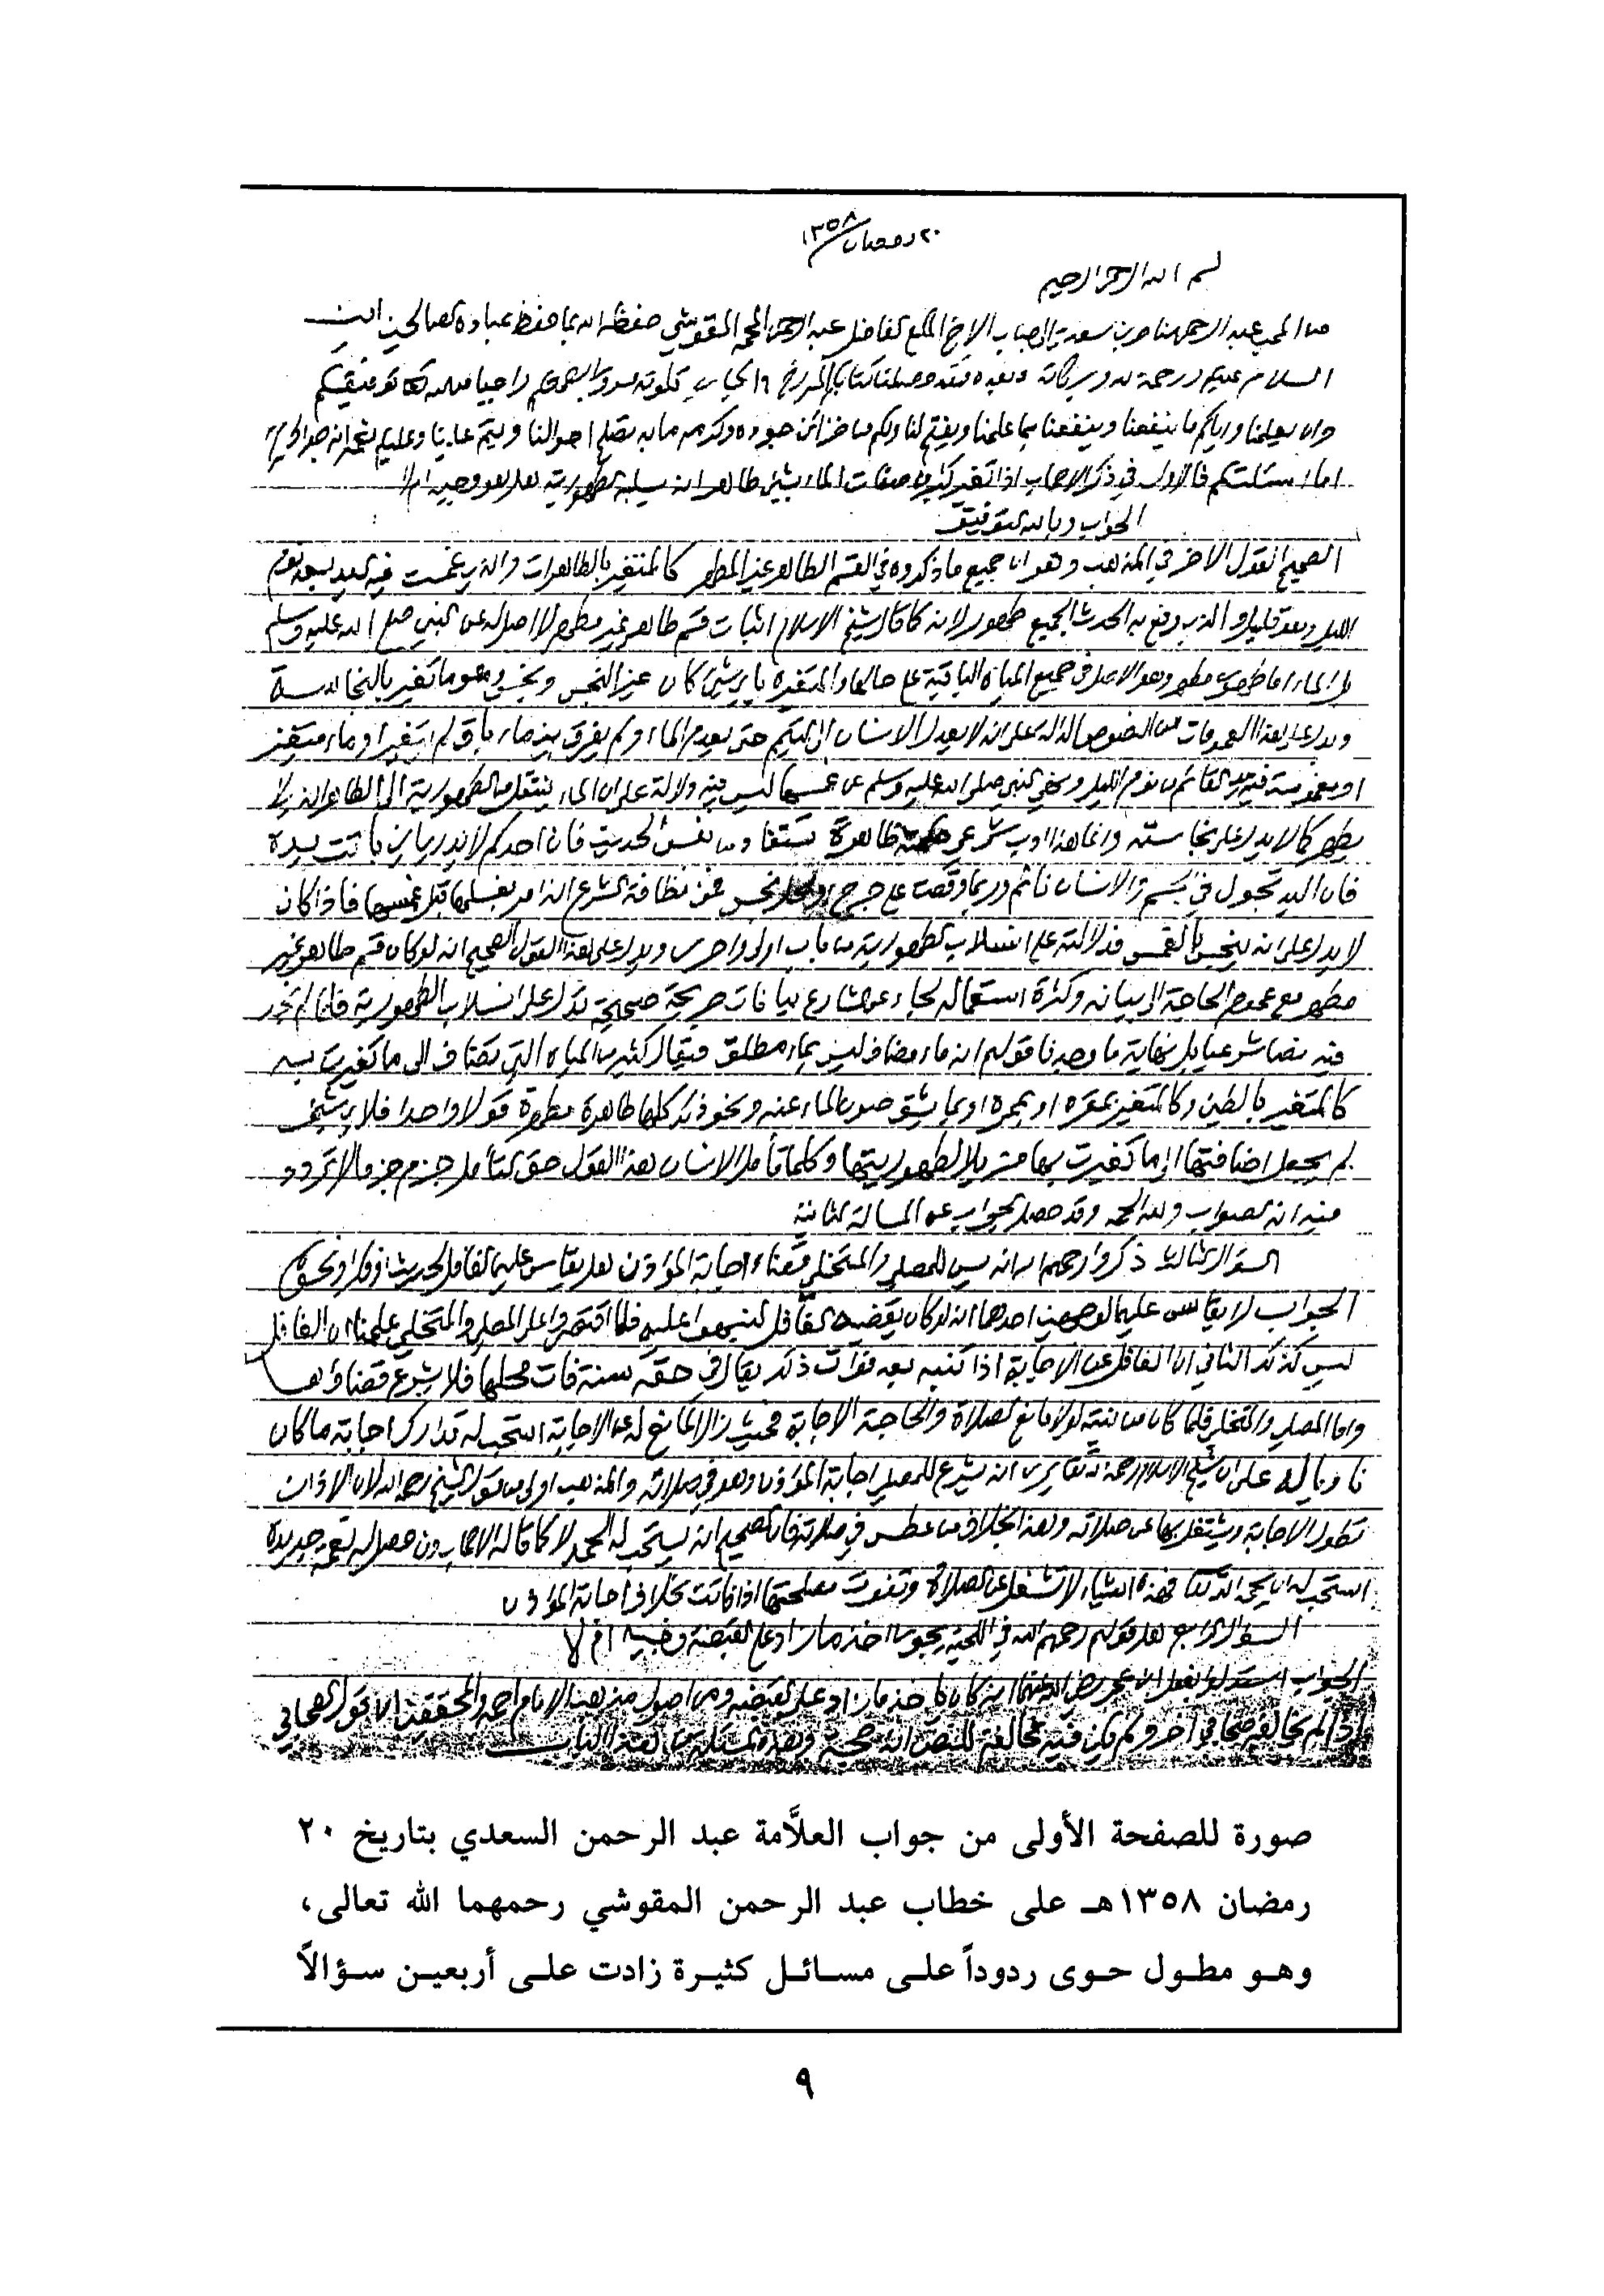 ٢٠ رمضان ١٣٥٨
بسم الله الرحمن الرحيم
من المحب عبد الرحمن بن ناصر بن سعدي إلى جناب الاخ المكرم الفاضل عبد الرحمن المحمد المقوشي حفظه الله بما حفظ به عباده الصالحين امين
السلام عليكم ورحمة الله وبركاته وبعده فقد وصلنا كتابكم المؤرخ تلوته مسرورا بصحتكم راجيا من الله تعالى توفيقكم
وان يعلمنا واياكم ما ينفعنا وينفعنا بما علمنا ويفتح لنا ولكم من خزائن جوده وكرمه ما به تصلح احوالنا ويتم علينا وعليكم نعمه انه جواد كريم
اما اسئلتكم فالاول في ذكر الاصحاب اذا تغير كثير من صفات الماء بشيء طاهر انه يسلبه الطهورية هل هو وجيه ام لا
الجواب وبالله التوفيق
الصحيح القول الاخر في المذهب وهو ان جميع ما ذكروه في القسم الطاهر غير المطهر كالمتغير بالطاهرات والذي غمست فيه اليد بعد نوم
الليل وهو قليل والذي رفع به الحدث الجميع طهور لانه كما قال شيخ الاسلام اثبات قسم طاهر غير مطهر لا اصل له عن النبي صلى الله عليه وسلم
بل الماء اما طهور مطهر وهو الاصل في جميع المياه الباقية على حالها والمتغيرة باي شيء كان غير النجس ونجس وهو ما تغير بالنجاسة
ويدل على هذا العمومات من النصوص الدالة على انه لا يعدل الانسان الى التيمم حتى يعدم الماء ولم يفرق بين ماء باق لم يتغير او ماء متغير
او مغموسة فيه يد القائم من نوم الليل ونهي النبي صلى الله عليه وسلم عن غمسها ليس فيه دلالة على ان الماء ينتقل من الطهورية الى الطاهر الذي لا
يطهر كما لا يدل على نجاسته وانما هذا ادب شرعي حكمته ظاهرة تستفاد من نفس الحديث فان احدكم لا يدري اين باتت يده
فان اليد تجول في جسم الانسان نائم وربما وقعت على جرح او محل نجس فمن نظافة الشرع انه امر بغسلها قبل غمسها فاذا كان
لا يدل على انه ينجس بالغمس فدلالته على انسلاب الطهورية من باب اولى واحرى ويدل على هذا القول الصحيح انه لو كان قسم طاهر غير
مطهر مع عموم الحاجة الى بيانه وكثرة استعماله لجاء عن الشارع بيانات صريحة صحيحة تدل على انسلاب الطهورية فلما لم نجد
فيه نصا شرعيا بل نهاية ما وجدنا قولهم انه ماء مضاف ليس بماء مطلق فيقال كثير من المياه التي تضاف الى ما تغيرت به
كالمتغير بالطين وكالمتغير بمقره او بممره او بما يشق صون الماء عنه ونحو ذلك كلها طاهرة مطهرة قولا واحدا فلاي شيء
لم يجعل اضافتها الى ما تغيرت بها مزيلا لطهوريتها وكلما تأمل الانسان هذا القول حق التأمل جزم جزما لا تردد
فيه انه الصواب ولله الحمد وقد حصل الجواب عن المسالة الثانية
السؤال الثالث ذكروا رحمهم الله انه يسن للمصلي والمتخلي قضاء اجابة المؤذن هل يقاس عليهما الغافل لحديث او فكر او نحوه
الجواب لا يقاس عليهما لوجهين احدهما انه لو كان يقضيه الغافل لنبهوا عليه فلما اقتصروا على المصلي والمتخلي علمنا ان الغافل
ليس كذلك الثاني ان الغافل عن الاجابة اذا تنبه بعد فوات ذلك يقال في حقه سنة فات محلها فلا يشرع قضاؤها
واما المصلي والمتخلي فلما كان من نيته لولا مانع الصلاة والحاجة الاجابة فحيث زال المانع له عن الاجابة استحب له تدارك اجابة ما كان
ناويا له على ان شيخ الاسلام رحمه الله تعالى يرى انه يشرع للمصلي اجابة المؤذن وهو في صلاته والمذهب اولى من قول الشيخ رحمه الله لان الاذان
تطول الاجابة ويشتغل بها عن صلاته وهذا بخلاف من عطس في صلاته فان الصحيح انه يستحب له الحمد لا كما قاله الاصحاب ومن حصل له نعمة جديدة
استحب له ان يحمد الله تعالى فهذه اشياء لا تشغل عن الصلاة وتفوت مصلحتها اذا فاتت بخلاف اجابة المؤذن
السؤال الرابع هل قولهم رحمهم الله في اللحية يجوز اخذ ما زاد على القبضة وجيه ام لا
الجواب استدلوا بفعل ابن عمر رضي الله عنهما انه كان ياخذ ما زاد على القبضة ومن اصول مذهبنا الامام احمد والمحققين ان قول الصحابي
اذا لم يخالفه صحابي آخر ولم يكن فيه مخالفة للنص انه حجة وهذه المسئلة من هذا الباب
صورة للصفحة الأولى من جواب العلَّامة عبد الرحمن السعدي بتاريخ ٢٠
رمضان ١٣٥٨هـ على خطاب عبد الرحمن المقوشي رحمهما الله تعالى،
وهو مطول حوى ردوداً على مسائل كثيرة زادت على أربعين سؤالاً
٩